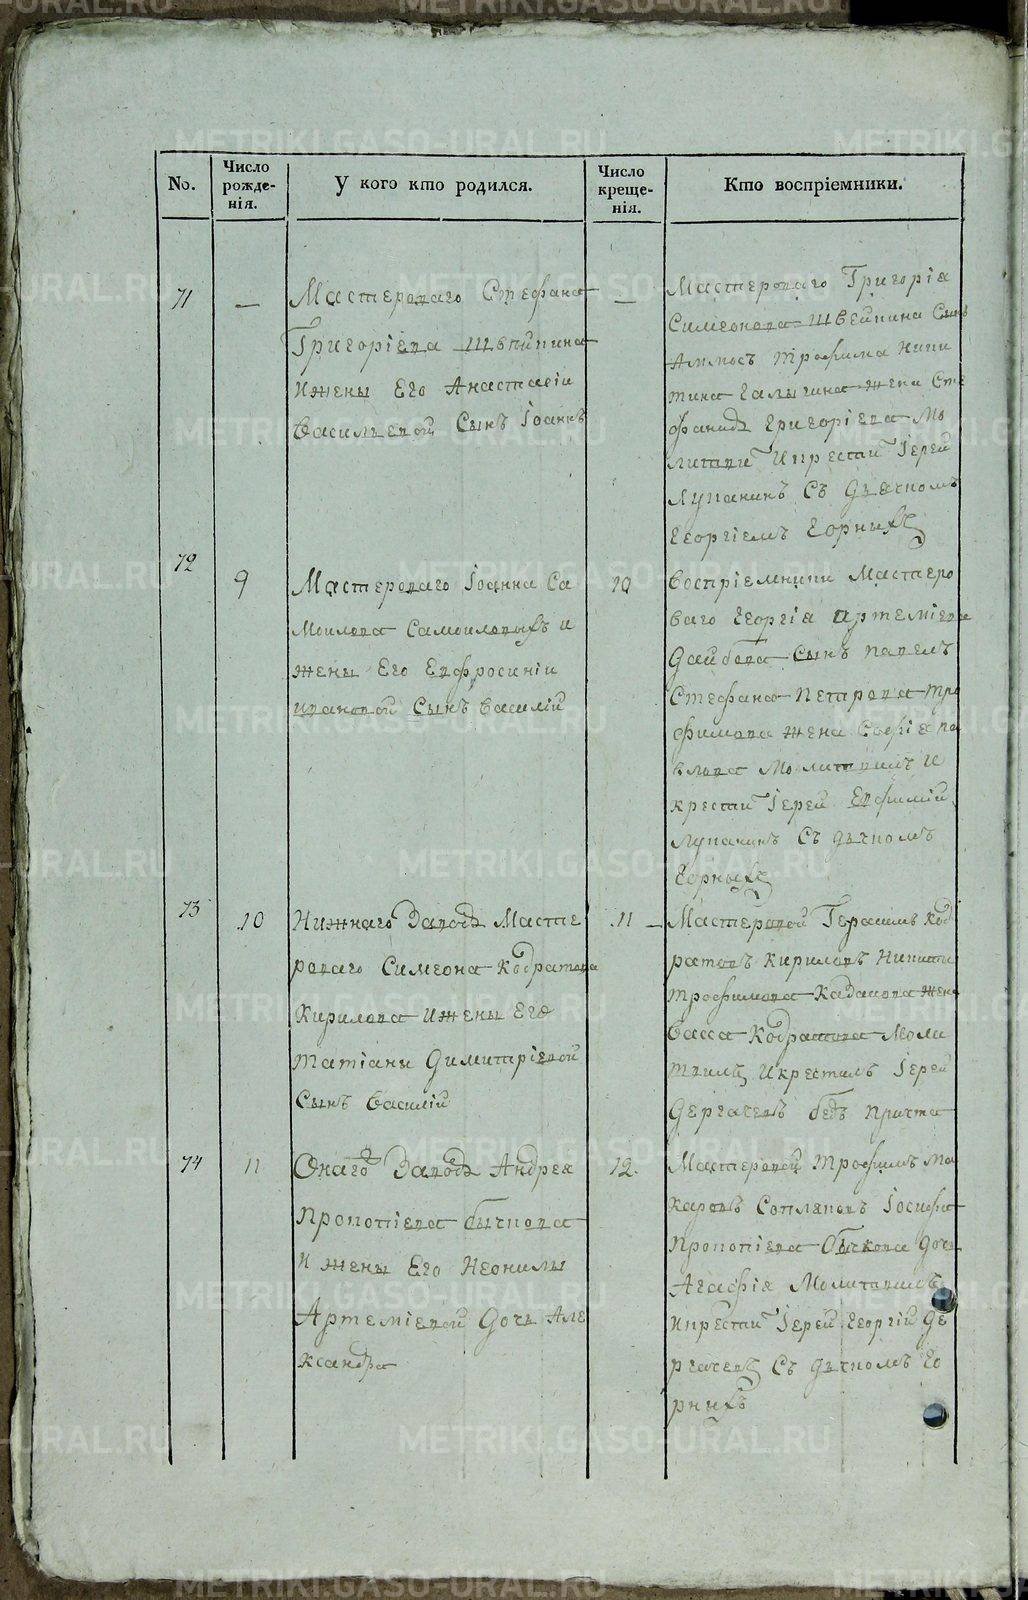 No.
Число рожде- нія.
У кого кто родился.
Число креще- нія.
Кто воспріемники.
71
—
Мастероваго Стефана
Григоріева Швейкина
И жены Его Анастасіи
Васильевой Сынъ Іоаннъ
—
Мастероваго Григорія
Симеонова Швейкина Сынъ
Аммосъ Трофима Ники
тина жена Сте
фанида Григоріева Мо
литвилъ И крестилъ Іерей
Лупанинъ Съ дьячкомъ
Георгіемъ Горныхъ
72
9
Мастероваго Іоанна Са
моилова Самоиловыхъ и
жены Его Евфросиніи
Ивановой Сынъ Василій
10
Воспріемники Мастеро
ваго Георгія Артеміева
Сынъ Павелъ
Стефана Петрова Тро
фимова жена Софія Па
влова Молитвилъ И
крестилъ Іерей Евфимій
Лупанинъ Съ дьячкомъ
Горныхъ
73
10
Нижнаго Завода Масте
роваго Симеона Кодратова
Кирилова И жены Его
Татіаны Димитріевой
Сынъ Василій
11 —
Мастеровой Герасимъ Код
ратовъ Кириловъ Никиты
Трофимова Кадакова жена
Васса Кодратова Моли
твилъ И крестилъ Іерей
Дергачевъ безъ Причта
74
11
Онаго Завода Андрея
Прокопіева Бычкова
И жены Его Неонилы
Артеміевой Дочь Але
ксандра
12.
Мастеровой Трофимъ Ма
каровъ Сопляковъ Іосифа
Прокопіева Бычкова Дочь
Агафія Молитвилъ
И крестилъ Іерей Георгій Де
ргачевъ Съ дьячкомъ Го
рныхъ
METRIKI.GASO-URAL.RU